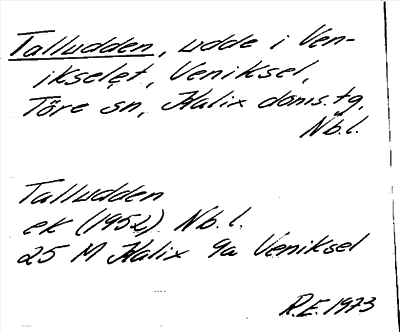 Talludden, udde i Ven-
ikselet, Veniksel,
Töre sn, Kalix doms.tg,
Nb.l.
Talludden
ek (1952) Nb.l.
25 M Kalix 9a Veniksel
R.E. 1973